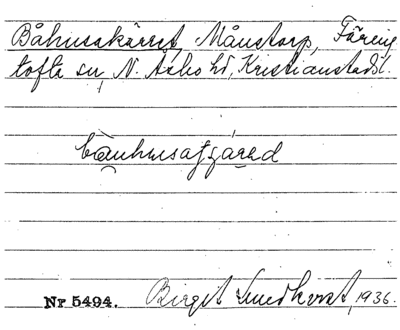 Båhusakärret, Månstorp, Färing
tofta sn, N. Åsbo hd, Kristianstads l.
Nr 5494. Birgit Smedkvist, 1936.